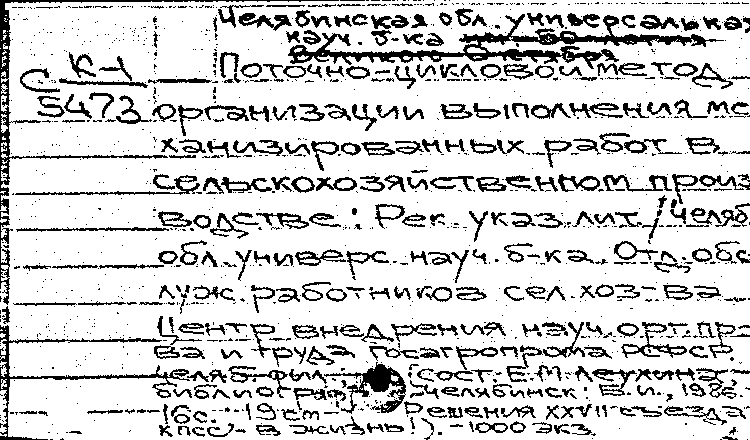 Челябинская обл. универсальная
науч. б-ка им. 60-летия
Великого Октября
С К-1
5473
Поточно-цикловой метод
организации выполнения ме-
ханизированных работ в
сельскохозяйственном произ-
водстве: Рек. указ. лит. / Челяб.
обл. универс. науч. б-ка. Отд. обс-
луж. работников сел. хоз-ва
Центр внедрения науч. орг. пр-
ва и труда Госагропрома РСФСР,
Челяб. фил. Сост. Е.М. Леухина,
библиограф - Челябинск: Б.и., 1986.
16с. 19см - Решения XXVII съезда
КПСС - в жизнь!). - 1000 экз.